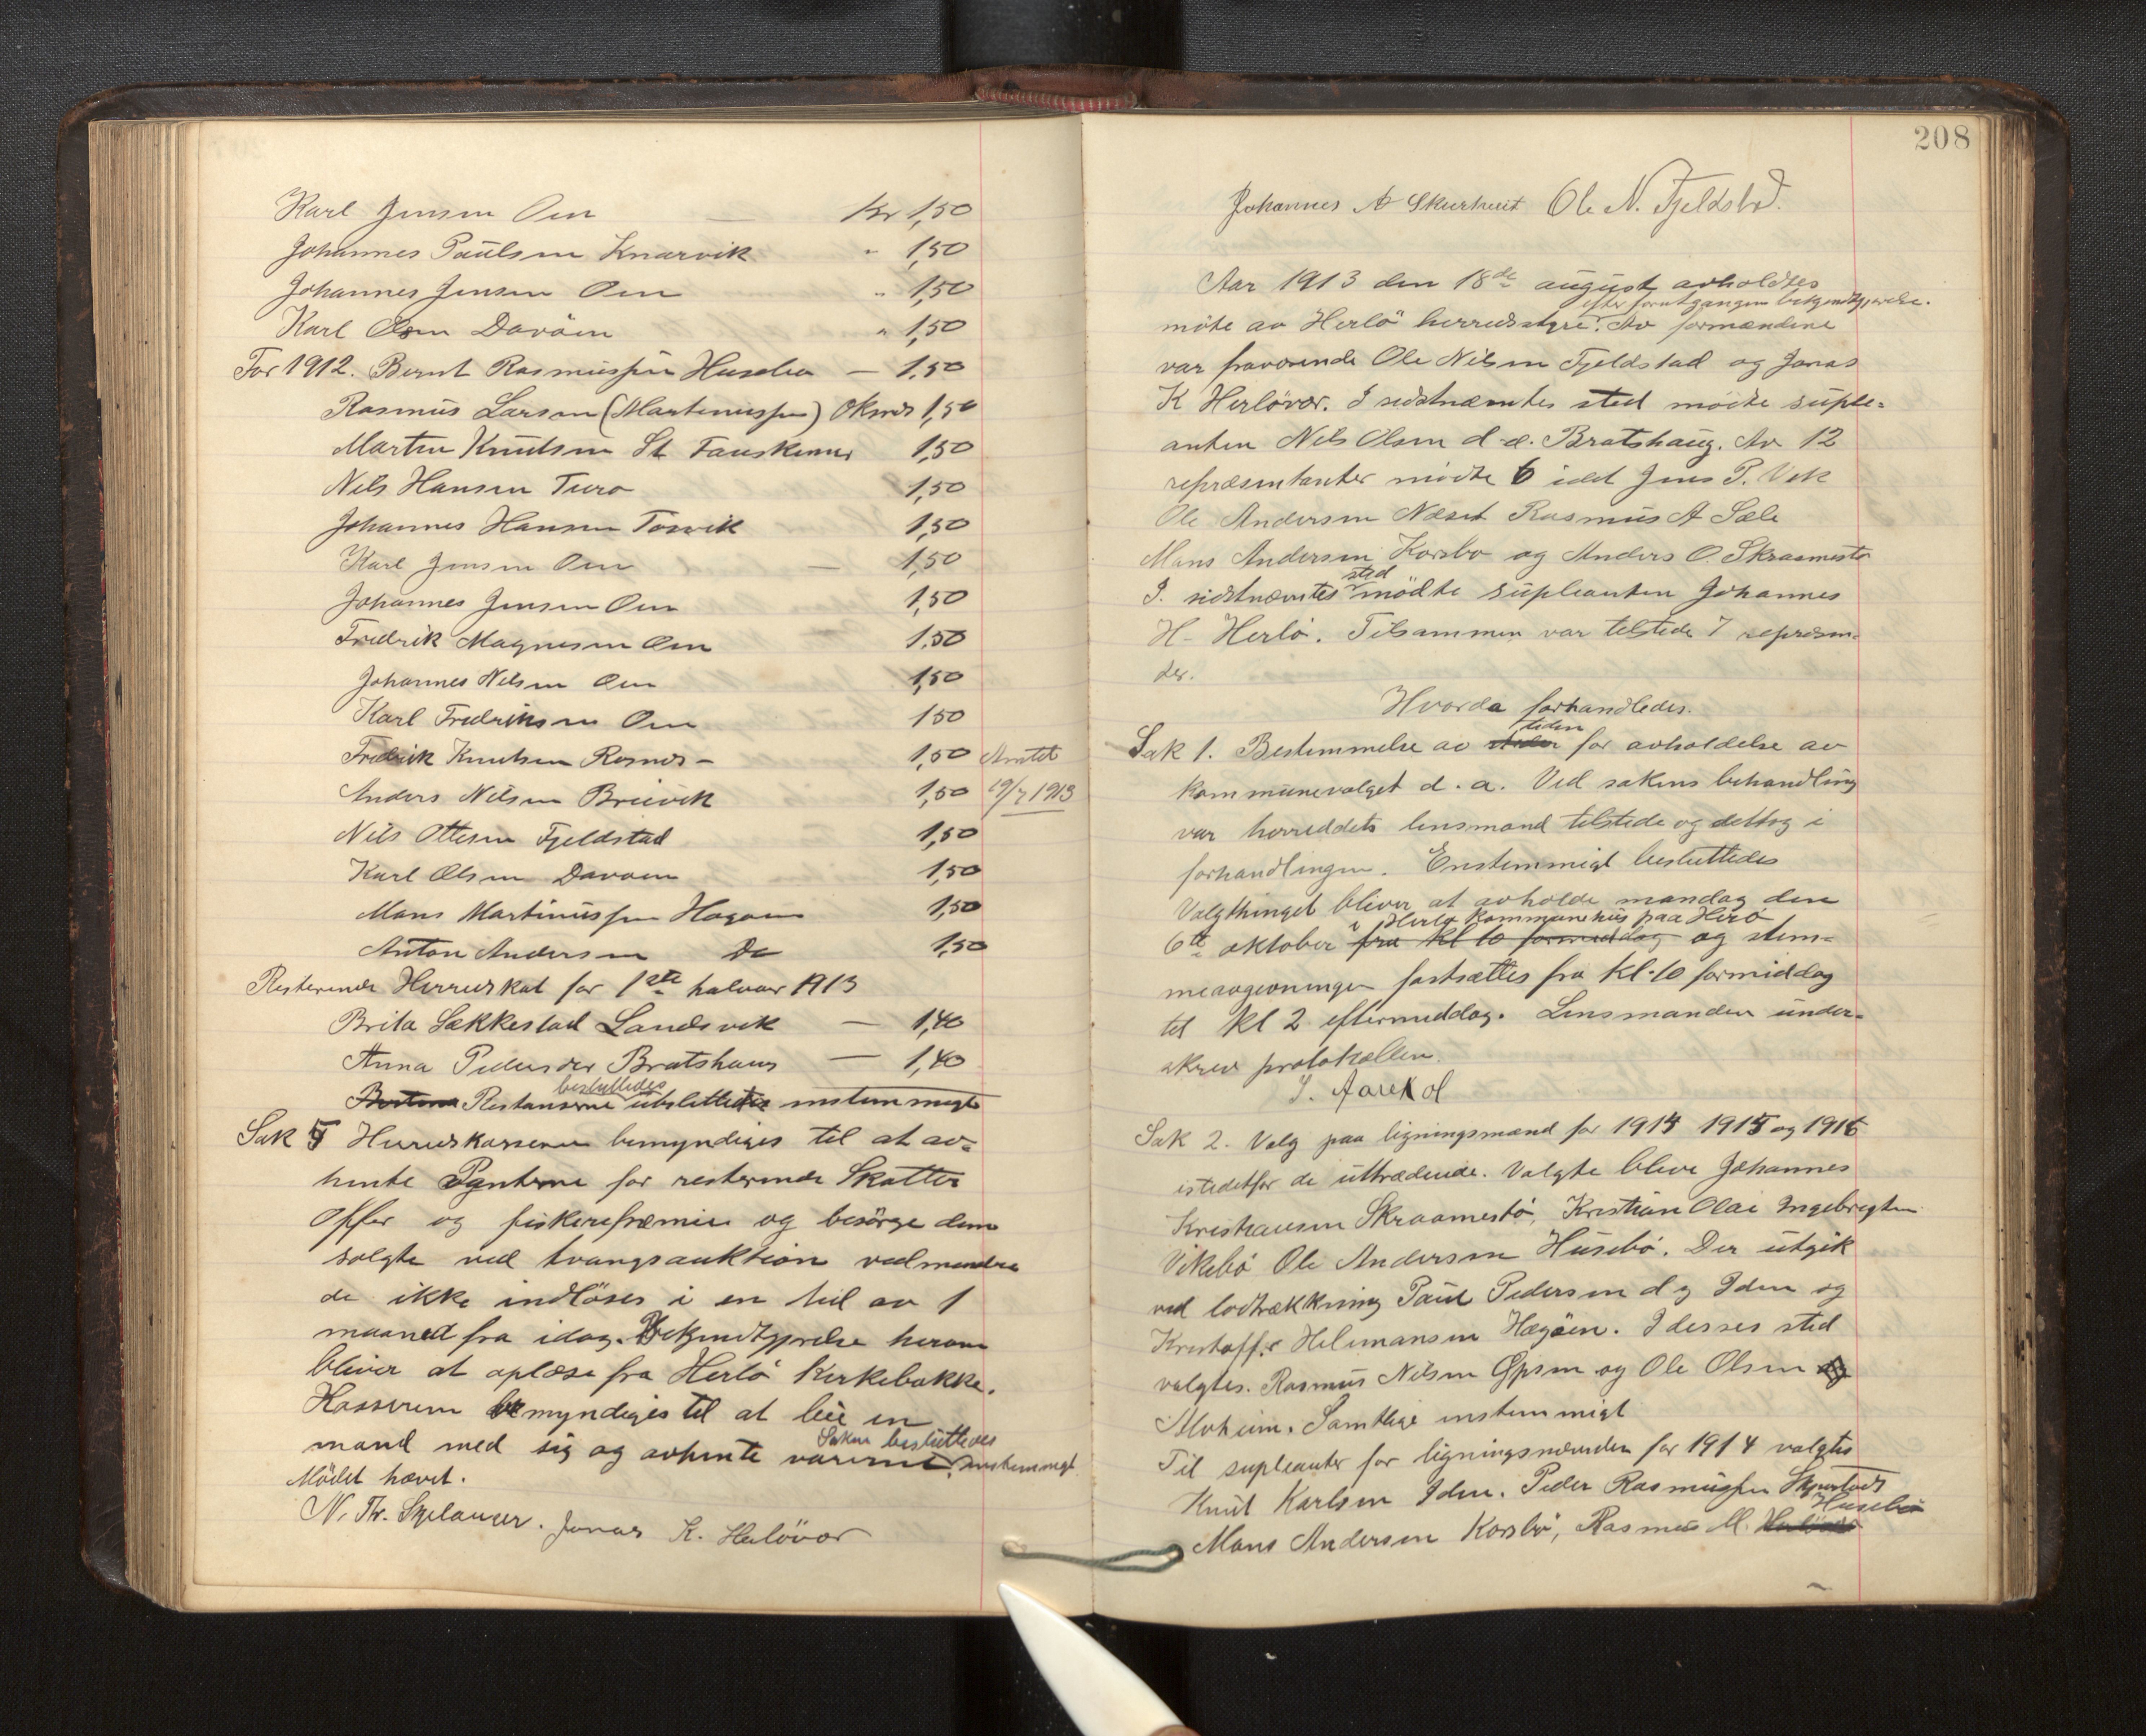 Karl Jensen Øen — Kr 1,50
Johannes Paulsen Knarvik " 1,50
Johannes Jensen Øen " 1,50
Karl Olsen Davøen " 1,50
For 1912. Bernt Rasmussen Husebø — 1.50
Rasmus Larsen (Martinussen) Oknes 1,50
Martin Knutsen St Fauskanger 1,50
Nils Hansen Turø 1,50
Johannes Hansen Tosvik 1,50
Karl Jensen Øen — 1,50
Johannes Jensen Øen 1,50
Fredrik Magnesen Øen 1.50
Johannes Nilsen Øen 1,50
Karl Fredriksen Øen 150
Fredrik Knutsen Rosnes - 1,50
Anders Nilsen Breivik 1,50 19/7 1913
Nils Ottesen Fjeldstad 1,50
Karl Olsen Davøen 1,50
Mons Martinussen Hagøen 1,50
Anton Andersen Do 1,50
Resterende Herredskat for 1ste halvaar 1913
Brita Sækkestad Landsvik — 1,40
Anna Pedersder Bratshaug — 1,40
Restanserne besluttedes utslettet enstemmigt
Sak 5 Herredskasseren bemyndiges til at av=
hente Panterne for resterende Skatter
Offer og fiskerepræmier og besørge dem
solgte ved tvangsauktion vedmindre
de ikke indløses i en tid av 1
maaned fra idag. Bekjendtgjørelse herom
bliver at oplæse fra Herlø Kirkebakke.
Kassereren bemyndiges til at leie en
mand med sig og avhente varerne. Saken besluttedes enstemmigt
Mødet hævet.
N. Th. Skjelanger. Jonas K. Herløvær
208
Johannes A Skurtveit Ole N. Fjeldstad.
Aar 1913 den 18de august avholdtes
møte av Herlø herredsstyre efter forutgangen bekjendtgjørelse. Av formændene
var fraværende Ole Nilsen Fjeldstad og Jonas
K Herløvær. I sidstnæmtes sted mødte suple=
anten Nils Olsen d. e. Bratshaug. Av 12
repræsentanter mødte 6 idet Jens P. Vik
Ole Andersen Næset Rasmus A Sæle
Mons Andersen Korsbø og Anders O. Skraamestø
I. sidstnævntes sted mødte supleanten Johannes
H. Herlø. Tilsammen var tilstede 7 repræsen=
der.
Hvorda forhandledes.
Sak 1. Bestemmelse av tiden for avholdelse av
kommunevalget d. a. Ved sakens behandling
var herreddets lensmand tilstede og deltog i
forhandlingen. Enstemmigt besluttedes
Valgthinget bliver at avholde mandag den
6te oktober i Herlø kommunehus paa Herø fra kl 10 formiddag og stem=
meavgivningen fastsættes fra kl. 10 formiddag
til kl 2 eftermiddag. Lensmanden under=
skrev protokollen.
Sak 2. Valg paa ligningsmænd for 1914 1915 og 1916
istedetfor de uttrædende. Valgte bleve Johannes
Kristiansen Skraamestø, Kristian Olai Ingebrigtsen
Vikebø Ole Andersen Husebø. Der utgik
ved lodtrækkning Paul Pedersen d y Iden og
Kristoffer Hilmansen Hægøen. I desses sted
valgtes. Rasmus Nilsen Gpsen og Ole Olsen
Alvheim. Samtlige enstemmigt
Til supleanter for ligningsnævnden for 1914 valgtes
Knut Karlsen Iden. Peder Rasmussen Skjurtveit
Mons Andersen Korsbø, Rasmus M. Husebø